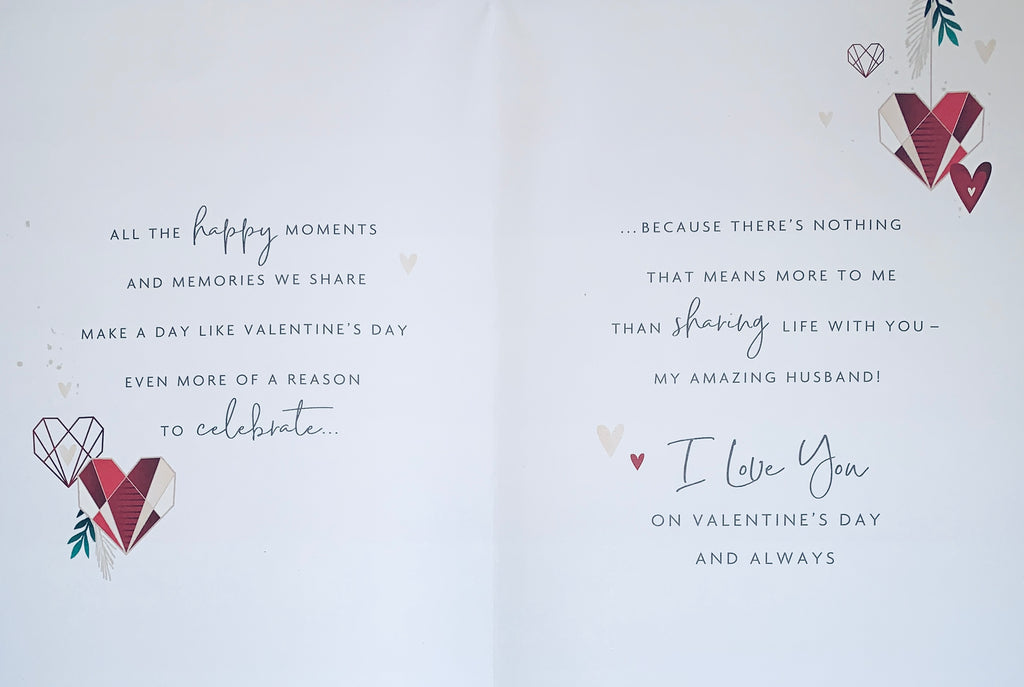 ALL THE happy MOMENTS
AND MEMORIES WE SHARE
MAKE A DAY LIKE VALENTINE'S DAY
EVEN MORE OF A REASON
TO celebrate...
...BECAUSE THERE'S NOTHING
THAT MEANS MORE TO ME
THAN sharing LIFE WITH YOU –
MY AMAZING HUSBAND!
I Love You
ON VALENTINE'S DAY
AND ALWAYS